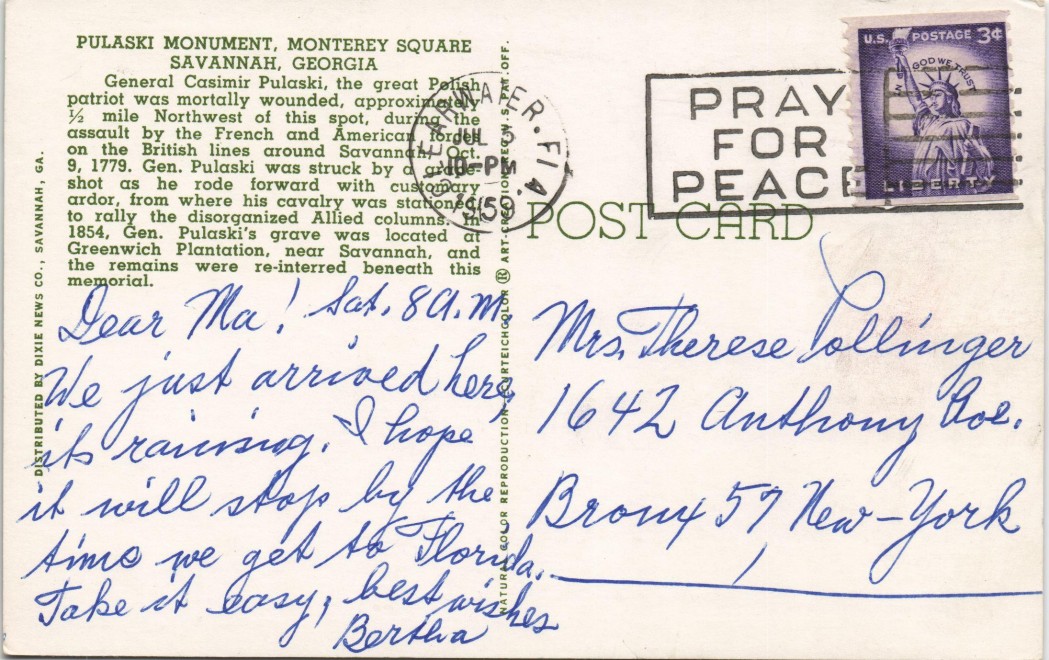 PULASKI MONUMENT, MONTEREY SQUARE
SAVANNAH, GEORGIA
General Casimir Pulaski, the great Polish
patriot was mortally wounded, approximately
½ mile Northwest of this spot, during the
assault by the French and American forces
on the British lines around Savannah Oct.
9, 1779. Gen. Pulaski was struck by a grape
shot as he rode forward with customary
ardor, from where his cavalry was stationed
to rally the disorganized Allied columns. In
1854, Gen. Pulaski's grave was located at
Greenwich Plantation, near Savannah, and
the remains were re-interred beneath this
memorial.
DISTRIBUTED BY DIXIE NEWS CO., SAVANNAH, GA.
Dear Ma! Sat. 8 A.M.
We just arrived here,
its raining. I hope
it will stop by the
time we get to Florida.
Take it easy, best wishes
Bertha
NATURAL COLOR REPRODUCTION CURTEICHCOLOR ® ART-CREATION REG. U.S. PAT. OFF.
CLEARWATER. FLA.
JUL
10-PM
1959
PRAY
FOR
PEACE
U.S. POSTAGE 3¢
IN GOD WE TRUST
LIBERTY
POST CARD
Mrs. Therese Pollinger
1642 Anthony Ave.
Bronx 57 New-York